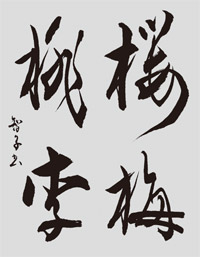 桜梅
桃李
智子書